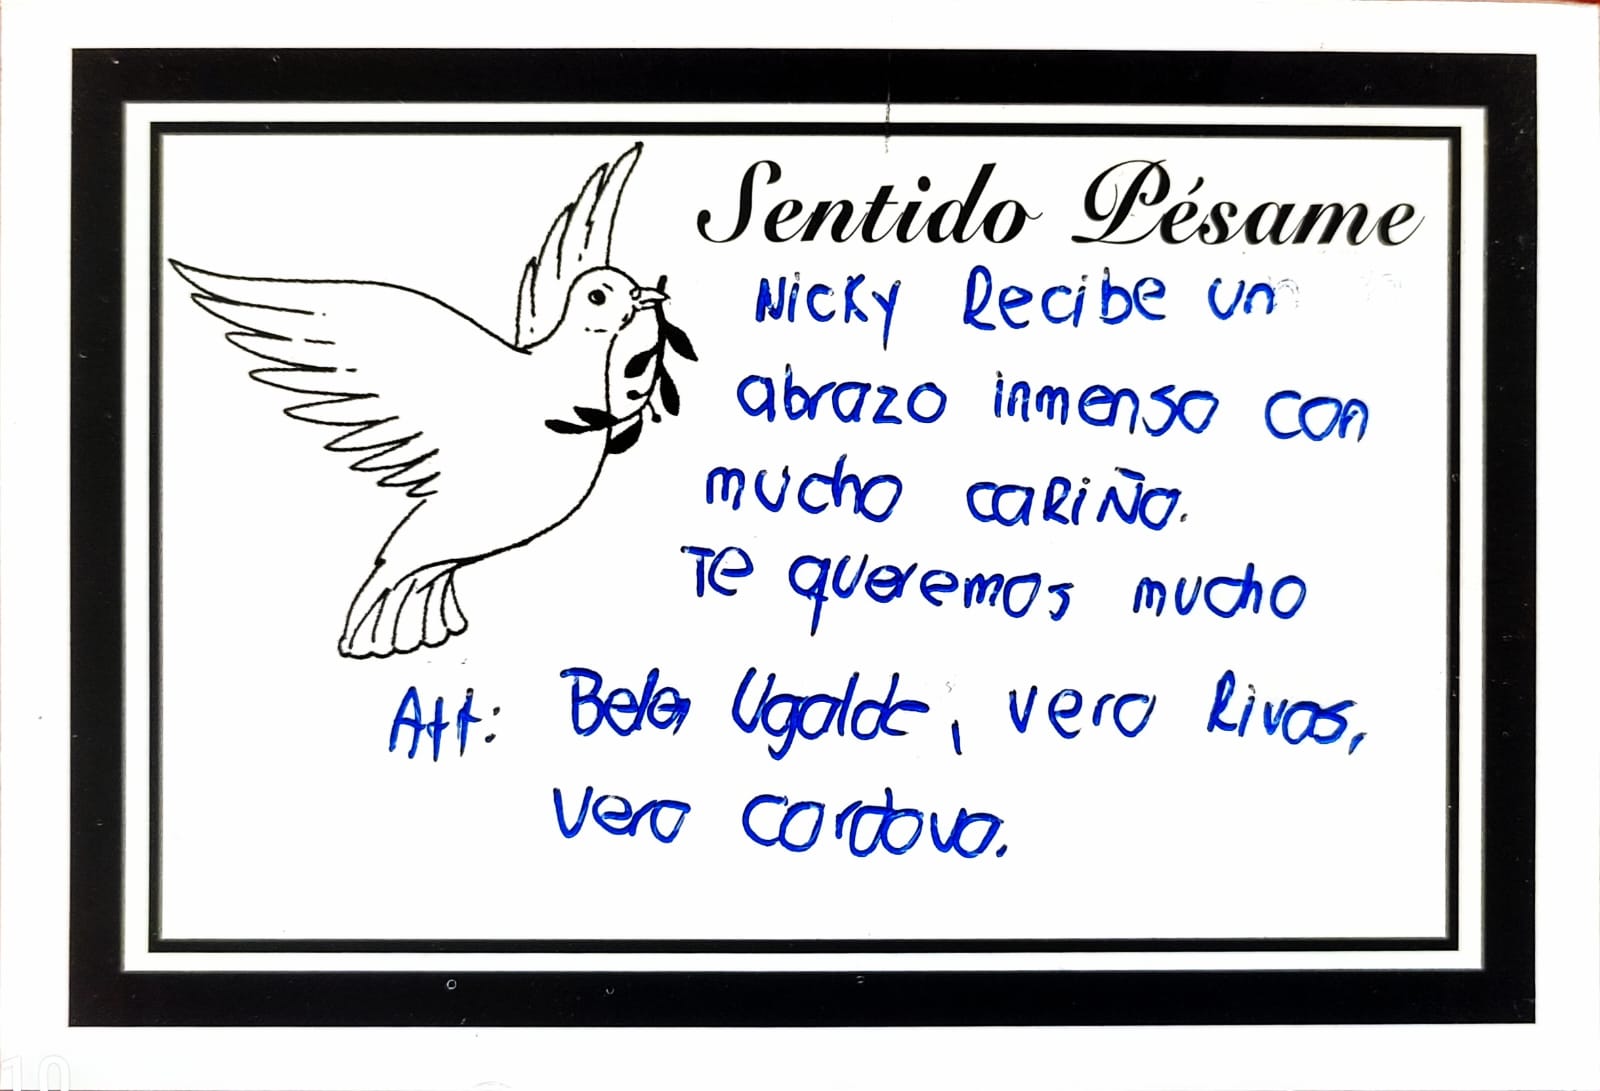 Sentido Pésame
Nicky Recibe un
abrazo inmenso con
mucho cariño.
Te queremos mucho
Att: Belen Ugalde, Vero Rivas,
Vero Cordova.
10